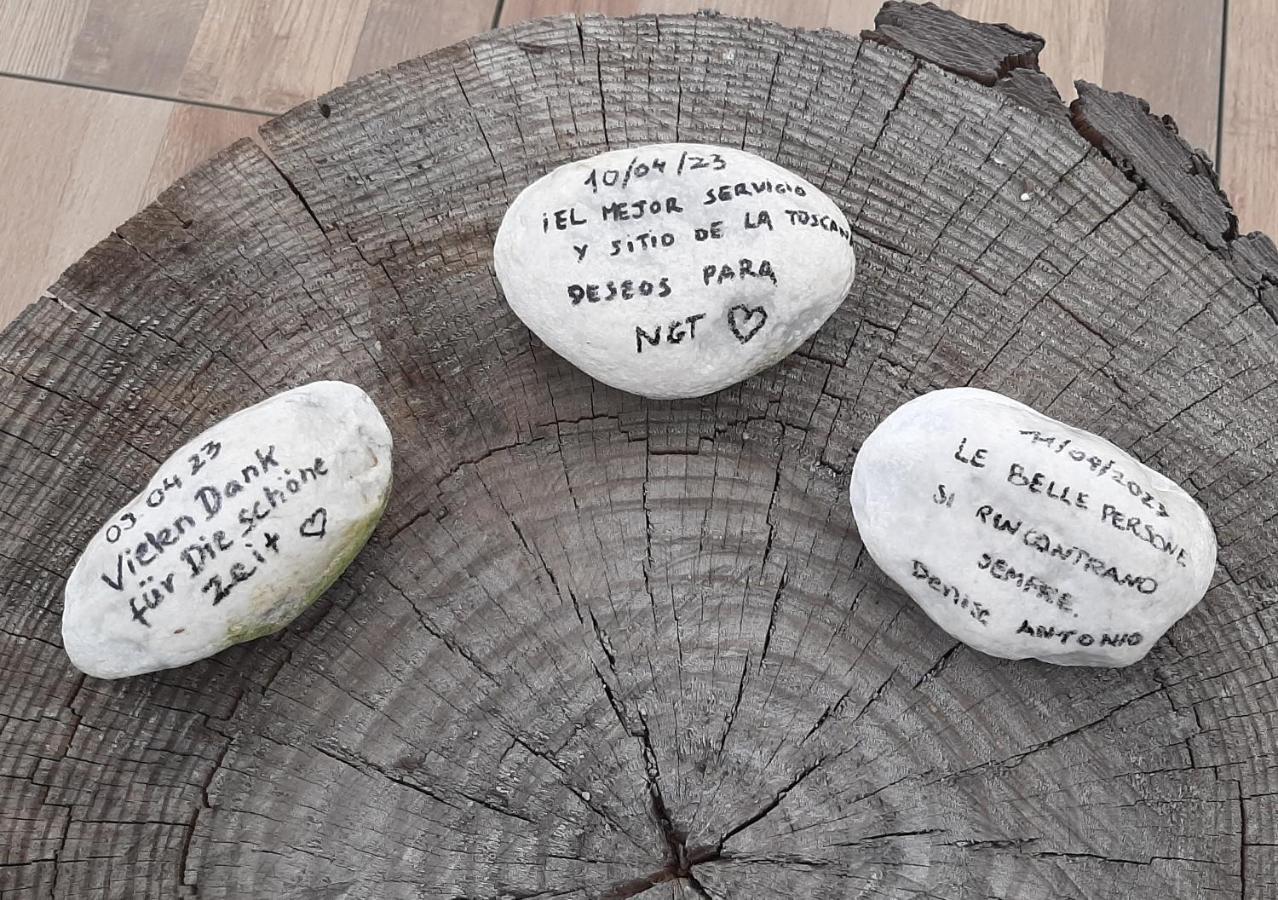 03.04 23
Vielen Dank
für Die schöne
zeit ♡
10/04/23
¡EL MEJOR SERVICIO
Y SITIO DE LA TOSCANA
DESEOS PARA
NGT ♡
11/04/2023
LE BELLE PERSONE
SI RINCONTRANO
SEMPRE.
DENISE ANTONIO